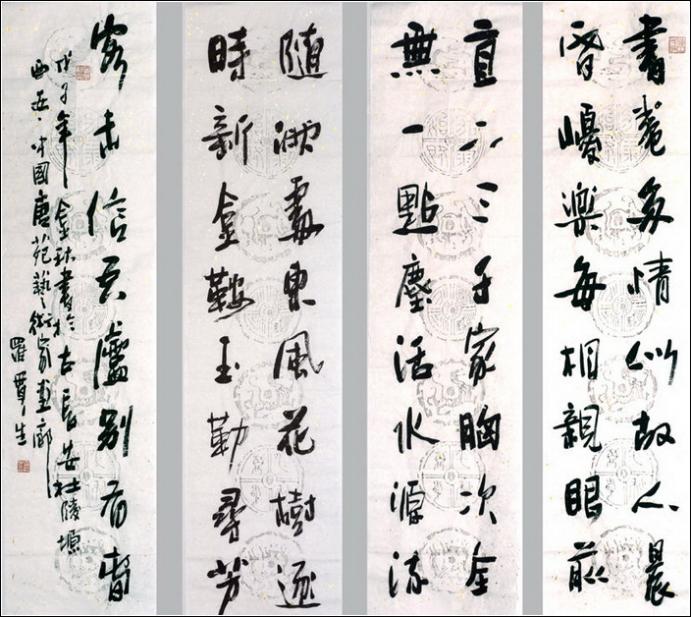 書卷多情似故人晨
昏憂樂每相親眼前
直下三千家胸次全
無一點塵活水源流
隨滿處東風花樹逐
時新金鞍玉勒尋芳
客未信吾廬別有春
戊子年金秋書於古長安杜陵塬
西安·中國唐苑藝術家畫廊
羅生